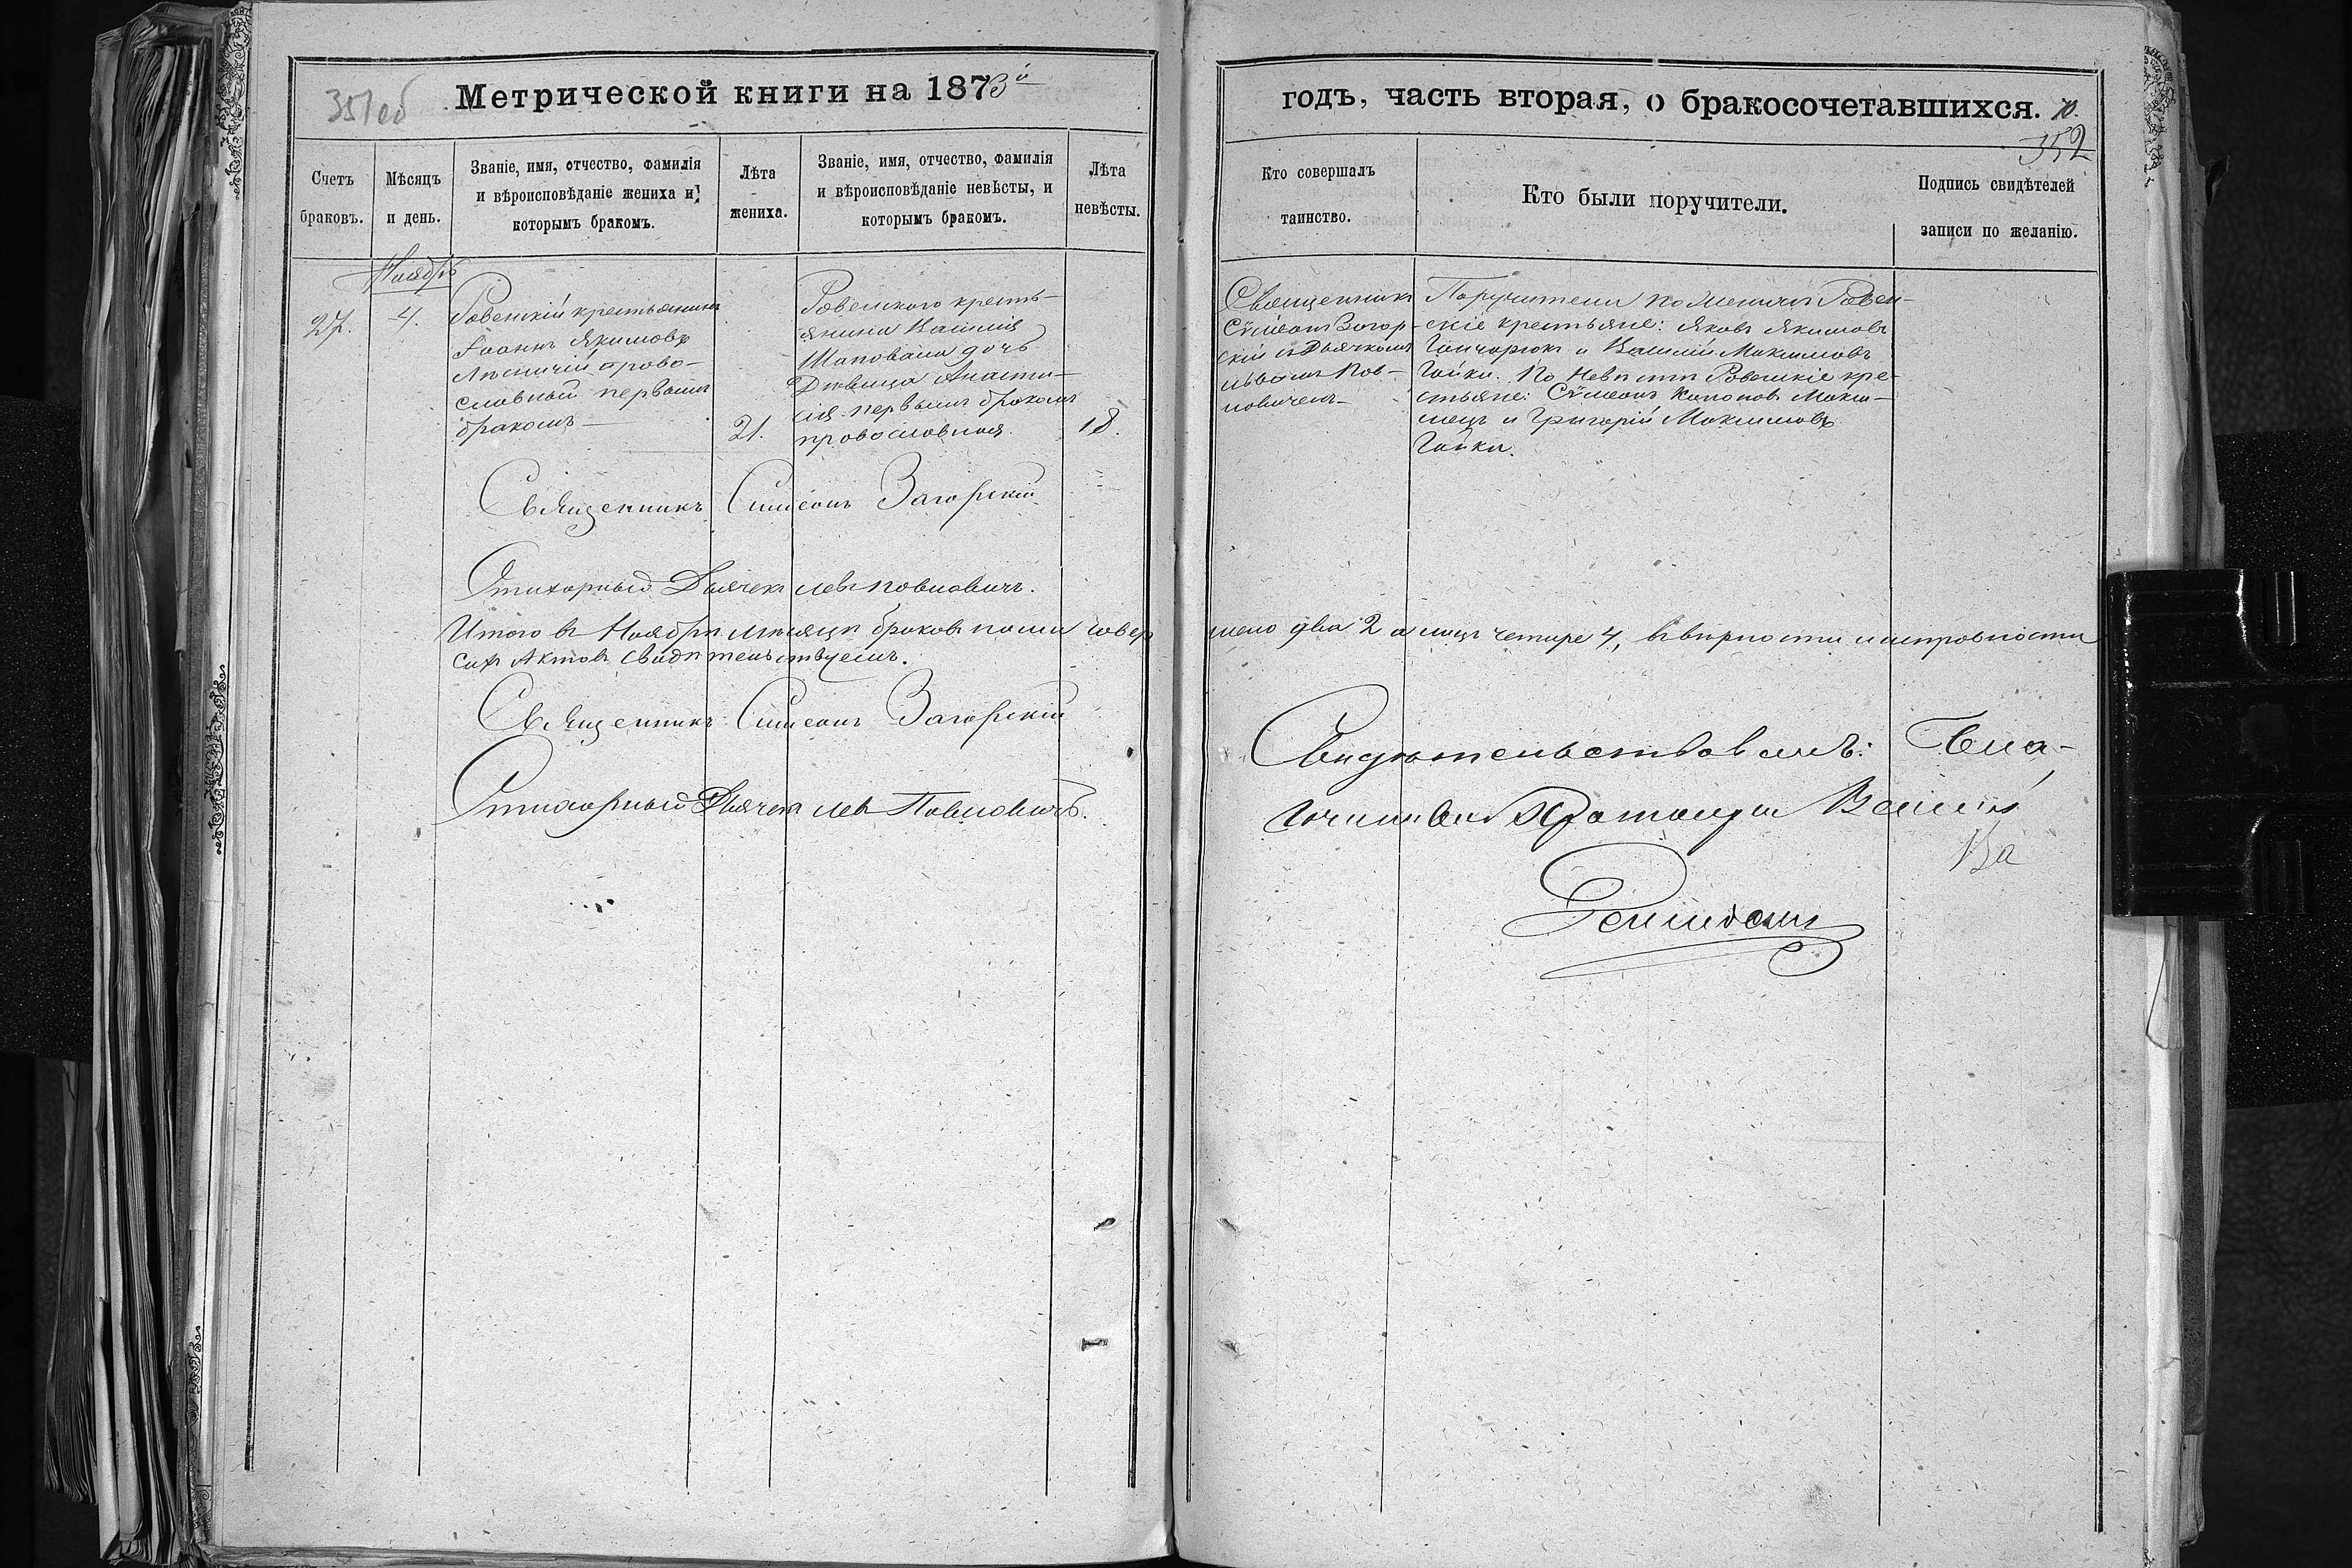 351об
Метрической книги на 1873й
Счетъ браковъ.
Мѣсяцъ и день.
Званіе, имя, отчество, фамилія
и вѣроисповѣданіе жениха и
которымъ бракомъ.
Лѣта жениха.
Званіе, имя, отчество, фамилія
и вѣроисповѣданіе невѣсты, и
которымъ бракомъ.
Лѣта невѣсты.
Ноябрь
27.
4.
Ровенскій крестьянинъ
Іоаннъ Якимовъ
православный первымъ
бракомъ
21.
Ровенского кресть-
янина Василія
Шаповала дочь
Дѣвица Анаста-
сія первымъ бракомъ
православная
18.
Священникъ Симеонъ Загорскій
Стихарный Дьячекъ Левъ Павловичъ.
Итого въ Ноябрѣ мѣсяцѣ браковъ совер
сихъ Актовъ свидѣтельствуемъ.
Священникъ Симеонъ Загорскій
Стихарный Дьячекъ Левъ Павловичъ.
годъ, часть вторая, о бракосочетавшихся.
10.
352
Кто совершалъ
таинство.
Кто были поручители.
Подпись свидѣтелей
записи по желанію.
Священникъ
Сѵмеонъ Загор-
скій съ Дьячкомъ
Львомъ Пав-
ловичемъ
Поручители по женихѣ Ровен-
скіе крестьяне: Яковъ Якимовъ
Гончарюкъ и Василій Максимовъ
Гайки. По невѣстѣ Ровенскіе кре-
стьяне: Сѵмеонъ Кононовъ
и Григорій Максимовъ
Гайки.
шено два 2 а лицъ четире 4, въ вѣрности и исправности
Свидѣтельствовалъ: Бла-
гочинный Василій